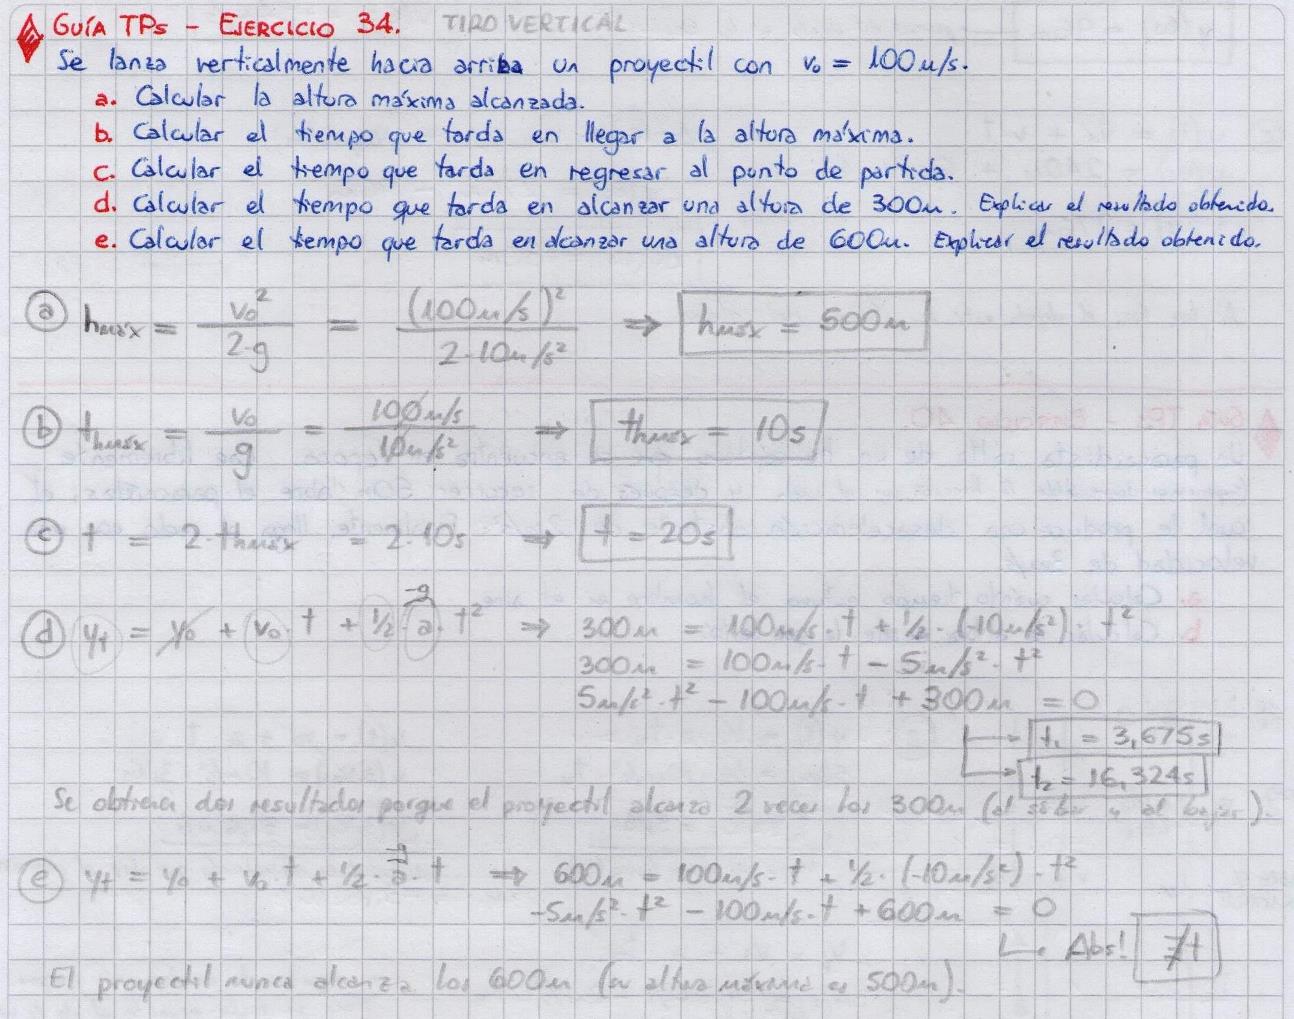 GUÍA TPs - EJERCICIO 34. TIRO VERTICAL
Se lanza verticalmente hacia arriba un proyectil con v₀ = 100m/s.
a. Calcular la altura máxima alcanzada.
b. Calcular el tiempo que tarda en llegar a la altura máxima.
c. Calcular el tiempo que tarda en regresar al punto de partida.
d. Calcular el tiempo que tarda en alcanzar una altura de 300m. Explicar el resultado obtenido.
e. Calcular el tiempo que tarda en alcanzar una altura de 600m. Explicar el resultado obtenido.
a hmáx = v₀² / 2·g = (100m/s)² / 2·10m/s² ⇒ hmáx = 500m
b thmáx = v₀ / g = 100m/s / 10m/s² ⇒ thmáx = 10s
c t = 2·thmáx = 2·10s ⇒ t = 20s
-g
d yt = y₀ + v₀·t + ½·a·t² ⇒ 300m = 100m/s·t + ½·(-10m/s²)·t²
300m = 100m/s·t - 5m/s²·t²
5m/s²·t² - 100m/s·t + 300m = 0
t₁ = 3,675s
t₂ = 16,324s
Se obtienen dos resultados porque el proyectil alcanza 2 veces los 300m (al subir y al bajar).
-g
e yt = y₀ + v₀·t + ½·a·t ⇒ 600m = 100m/s·t + ½·(-10m/s²)·t²
-5m/s²·t² - 100m/s·t + 600m = 0
Abs! ∄t
El proyectil nunca alcanza los 600m (su altura máxima es 500m).